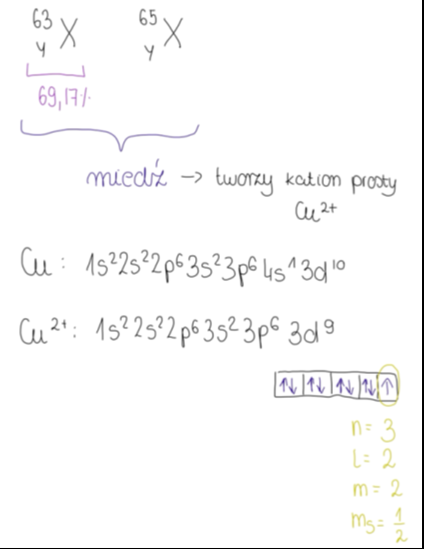 ⁶³ᵧX ⁶⁵ᵧX
69,17%
miedź → tworzy kation prosty
Cu²⁺
Cu: 1s²2s²2p⁶3s²3p⁶4s¹3d¹⁰
Cu²⁺: 1s²2s²2p⁶3s²3p⁶ 3d⁹
↑↓ ↑↓ ↑↓ ↑↓ ↑
n = 3
l = 2
m = 2
mₛ = 1/2